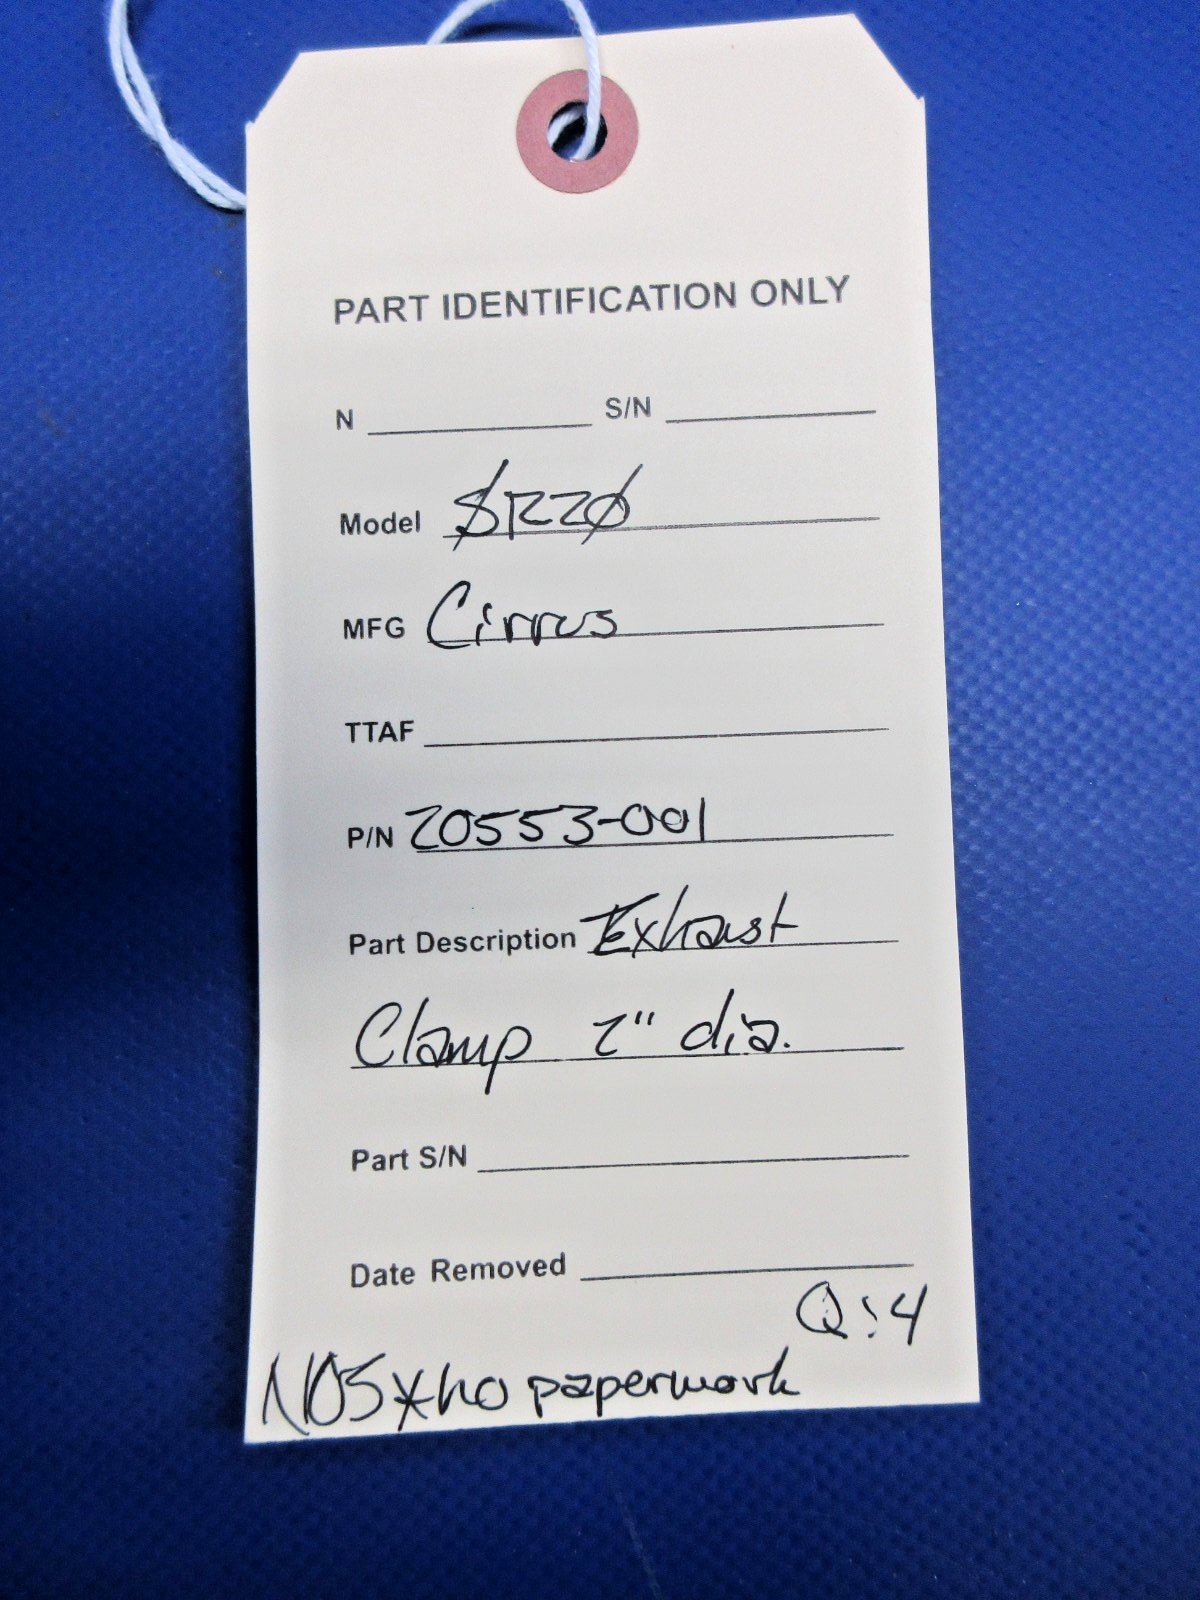 PART IDENTIFICATION ONLY
N S/N
Model SR22Ø
MFG Cirrus
TTAF
P/N 20553-001
Part Description Exhaust
Clamp 2" dia.
Part S/N
Date Removed
Q:4
NOS * no paperwork